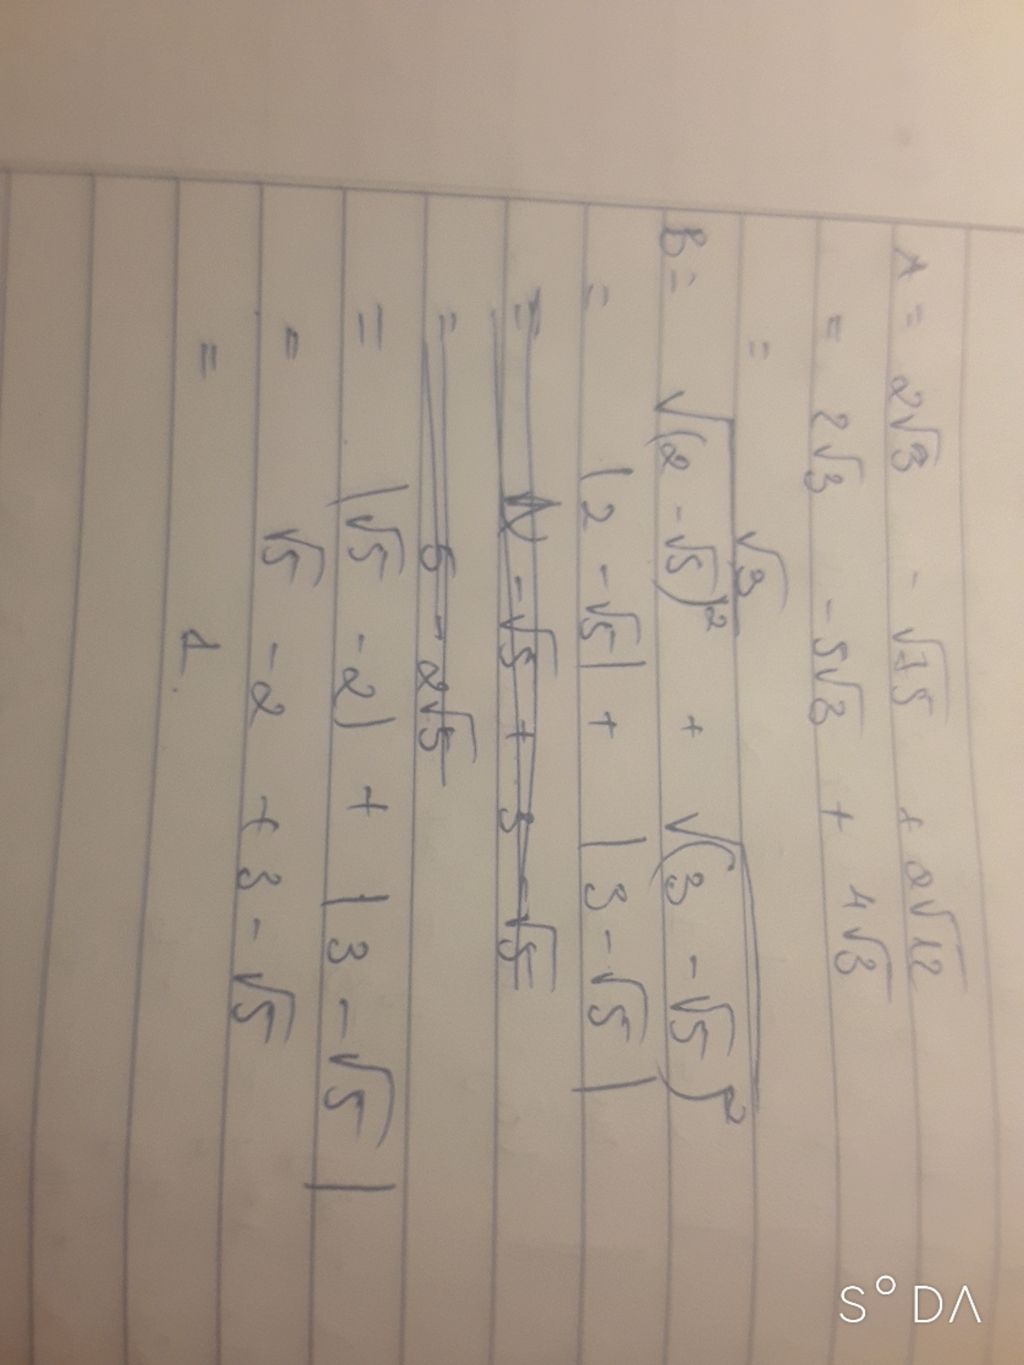 A = 2√3 - √75 + 2√12
= 2√3 - 5√3 + 4√3
= √3
B = √(2 - √5)² + √(3 - √5)²
= |2 - √5| + |3 - √5|
= 2 - √5 + 3 - √5
= 5 - 2√5
= |√5 - 2| + |3 - √5|
= √5 - 2 + 3 - √5
= 1.
S°DΛ